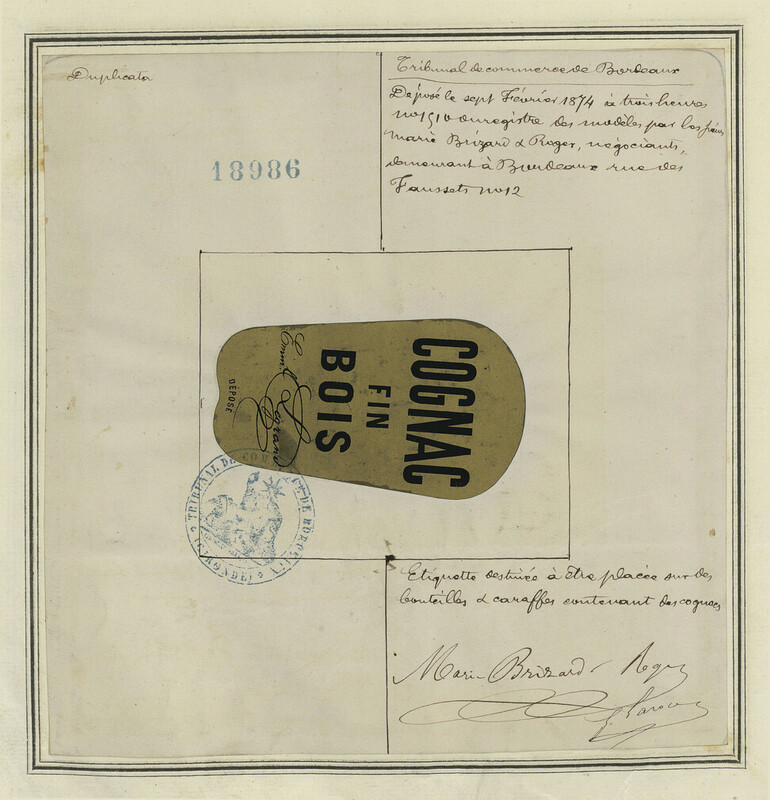 Duplicata
18986
Tribunal de commerce de Bordeaux
Déposé le sept Février 1874 à trois heures
no 1510 du registre des modèles par les sieurs
Marie Brizard & Roger, négociants,
demeurant à Bordeaux rue des
Faussets no 12
COGNAC
FIN
BOIS
Legrand
DÉPOSÉ
TRIBUNAL DE COMMERCE DE BORDEAUX
(GIRONDE)
Etiquette destinée à être placée sur des
bouteilles & caraffes contenant des cognacs
Marie Brizard & Roger